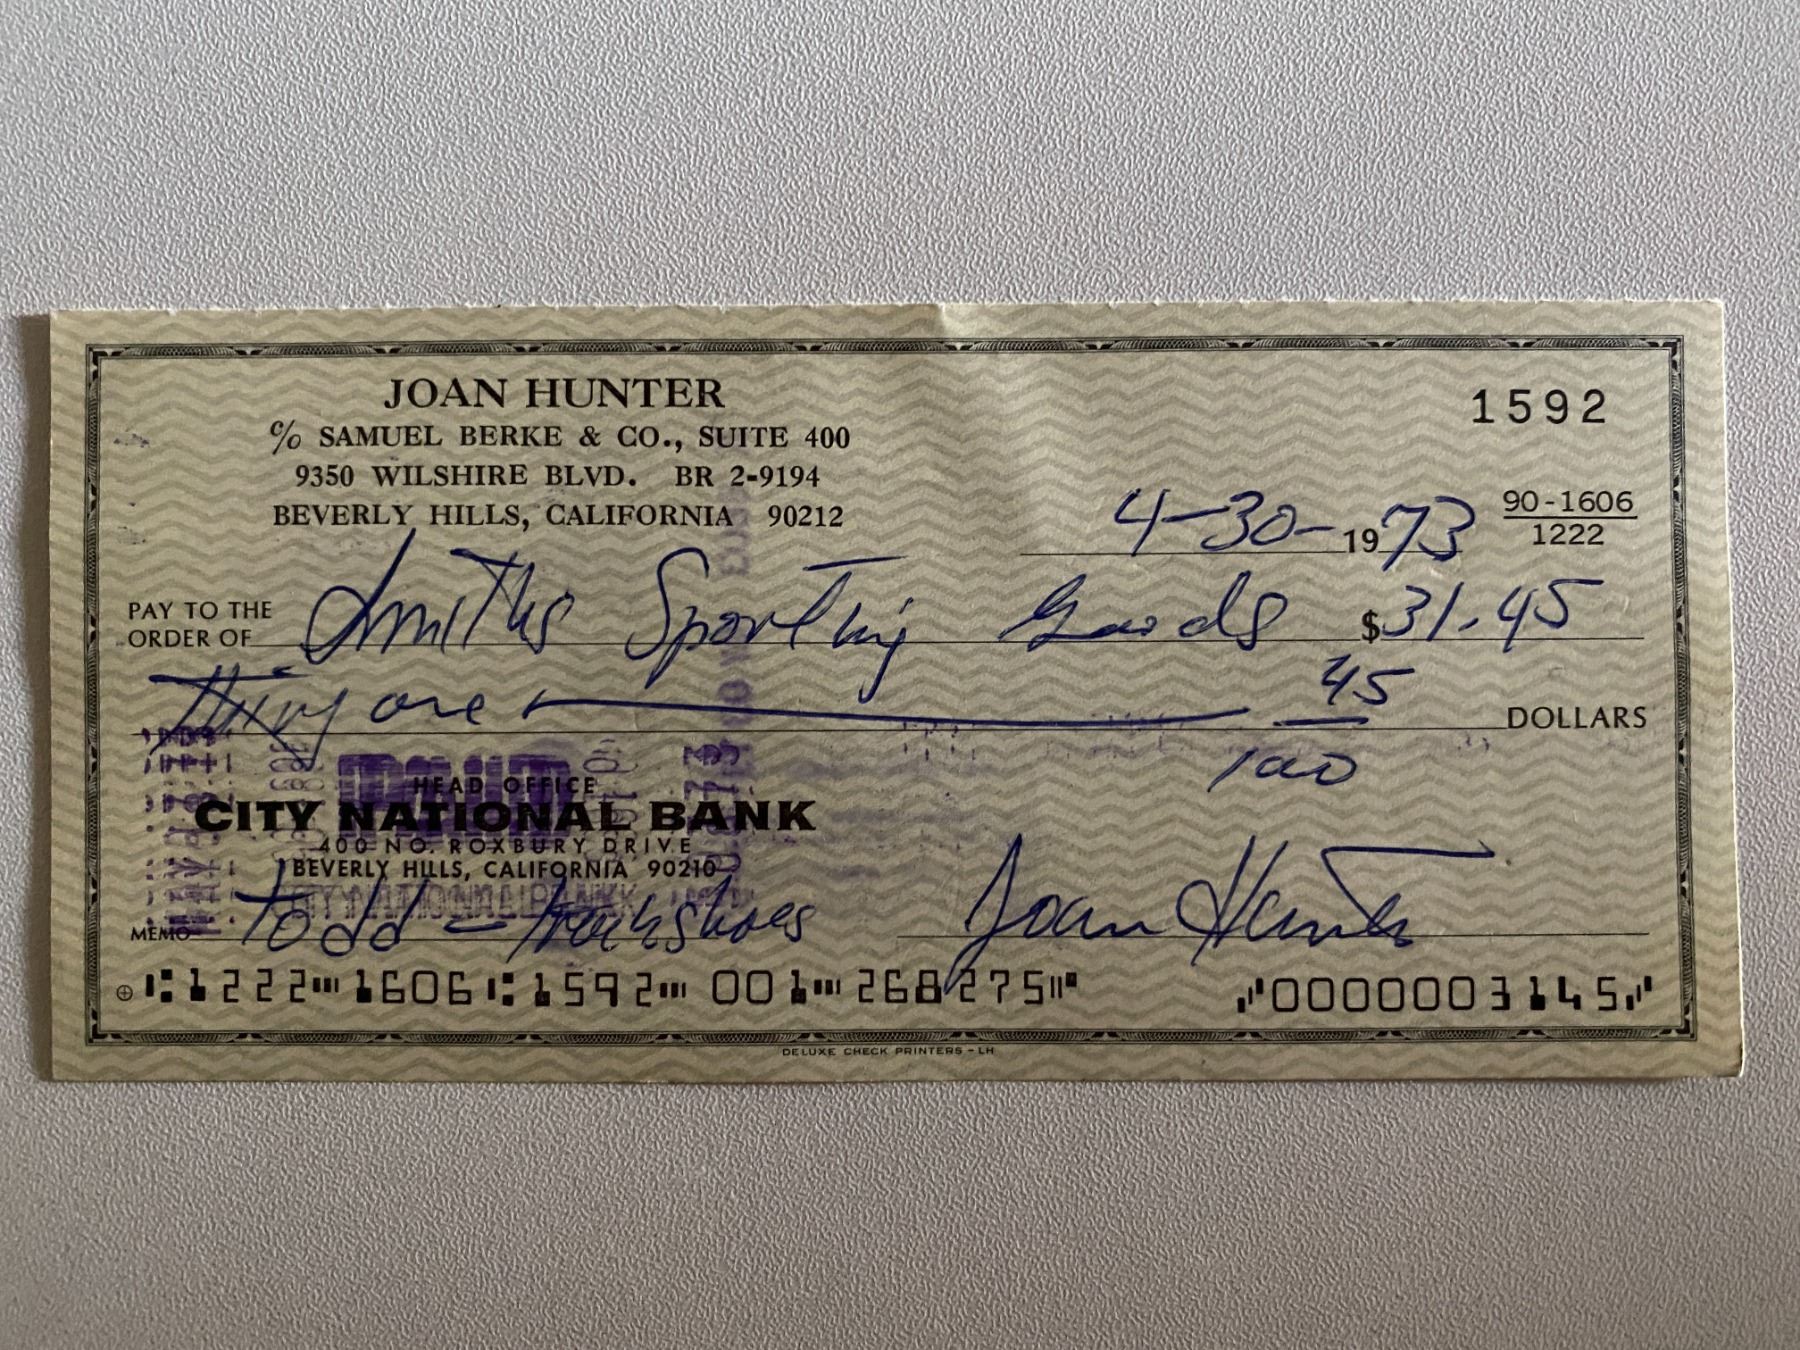 JOAN HUNTER
1592
% SAMUEL BERKE & CO., SUITE 400
9350 WILSHIRE BLVD. BR 2-9194
BEVERLY HILLS, CALIFORNIA 90212
4-30- 1973
90-1606
1222
PAY TO THE
ORDER OF Smiths Sporting Goods $31.45
Thirty one 45/100 DOLLARS
HEAD OFFICE
CITY NATIONAL BANK
400 NO. ROXBURY DRIVE
BEVERLY HILLS, CALIFORNIA 90210
MEMO Todd - trackshoes Joan Hunter
⑆1222⑉1606⑆1592⑉ 001⑉268275⑈ ⑇0000003145⑇
DELUXE CHECK PRINTERS - LH